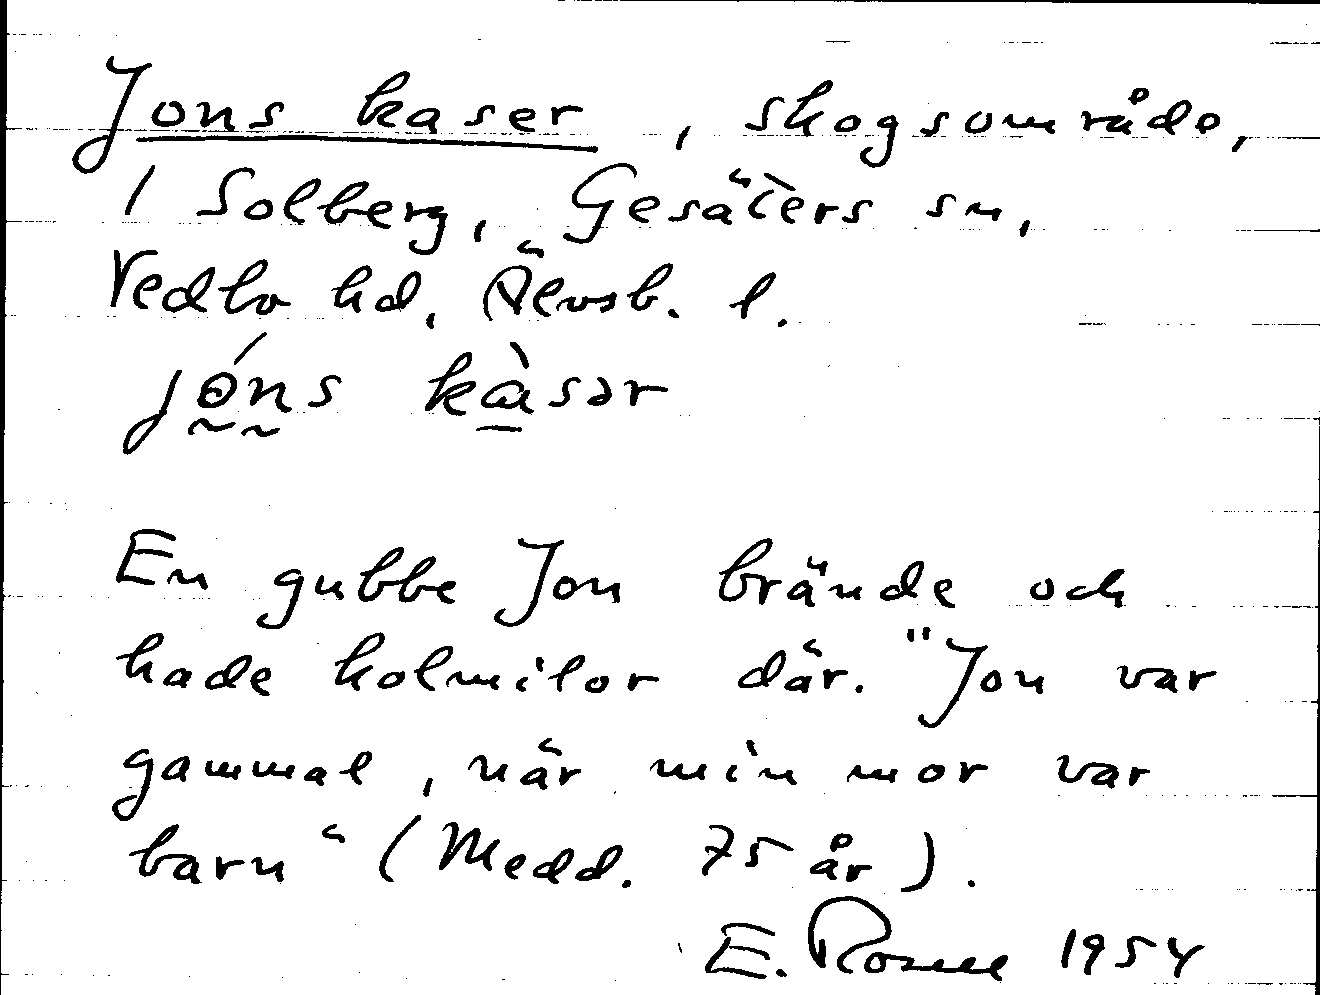 Jons kaser, skogsområde,
/ Solberg, Gesäters sn,
Vedbo hd, Älvsb. l.
jóns kàsər
En gubbe Jon brände och
hade kolmilor där. "Jon var
gammal, när min mor var
barn" (Medd. 75 år).
E. 1954